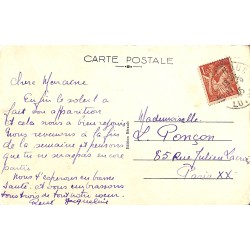 CARTE POSTALE
Chère Marraine
Enfin le soleil a
fait son apparition
Et cela nous a bien rejouis
Nous reviendrons à la fin
de la semaine et pensons
que tu ne seras pas encore
partie
Nous t'esperons en bonne
Santé. et vous embrassons
tous trois de tout notre coeur.
Jacqueline
Mademoiselle
L Ponçon
85 Rue Julien Lacroix
Paris XX